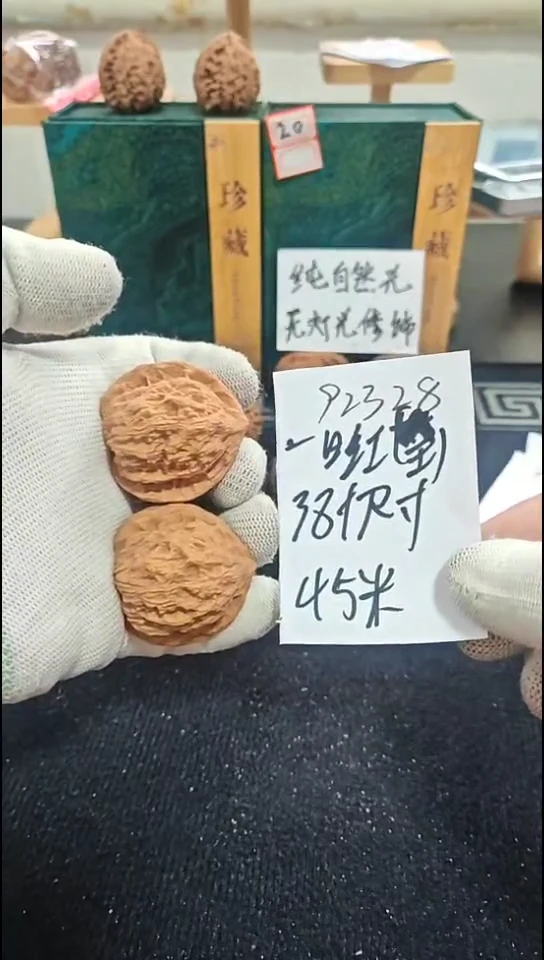 20
珍藏
珍藏
纯自然光
无灯光修饰
92328
一日红(墊)
38+尺寸
45米